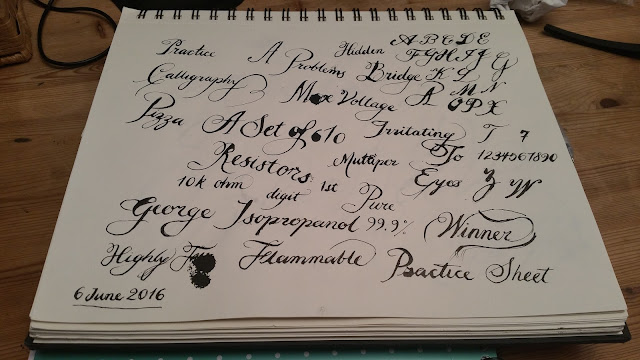 Practice A Problems Hidden A B C D E
F G H I J G
Calligraphy Bridge K L
Max Voltage A M N
O P X
Pizza A Set of 610 Irritating T 7
Resistors Multiper To 1234567890
10k ohm digit 1st Pure Eyes Z W
George Isopropanol 99.9% Winner
Highly Flammable Practice Sheet
6 June 2016